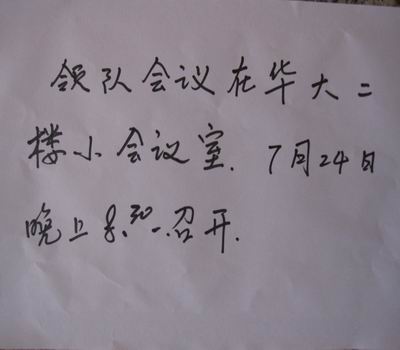 领队会议在华大二
楼小会议室. 7月24日
晚上8:30 召开.